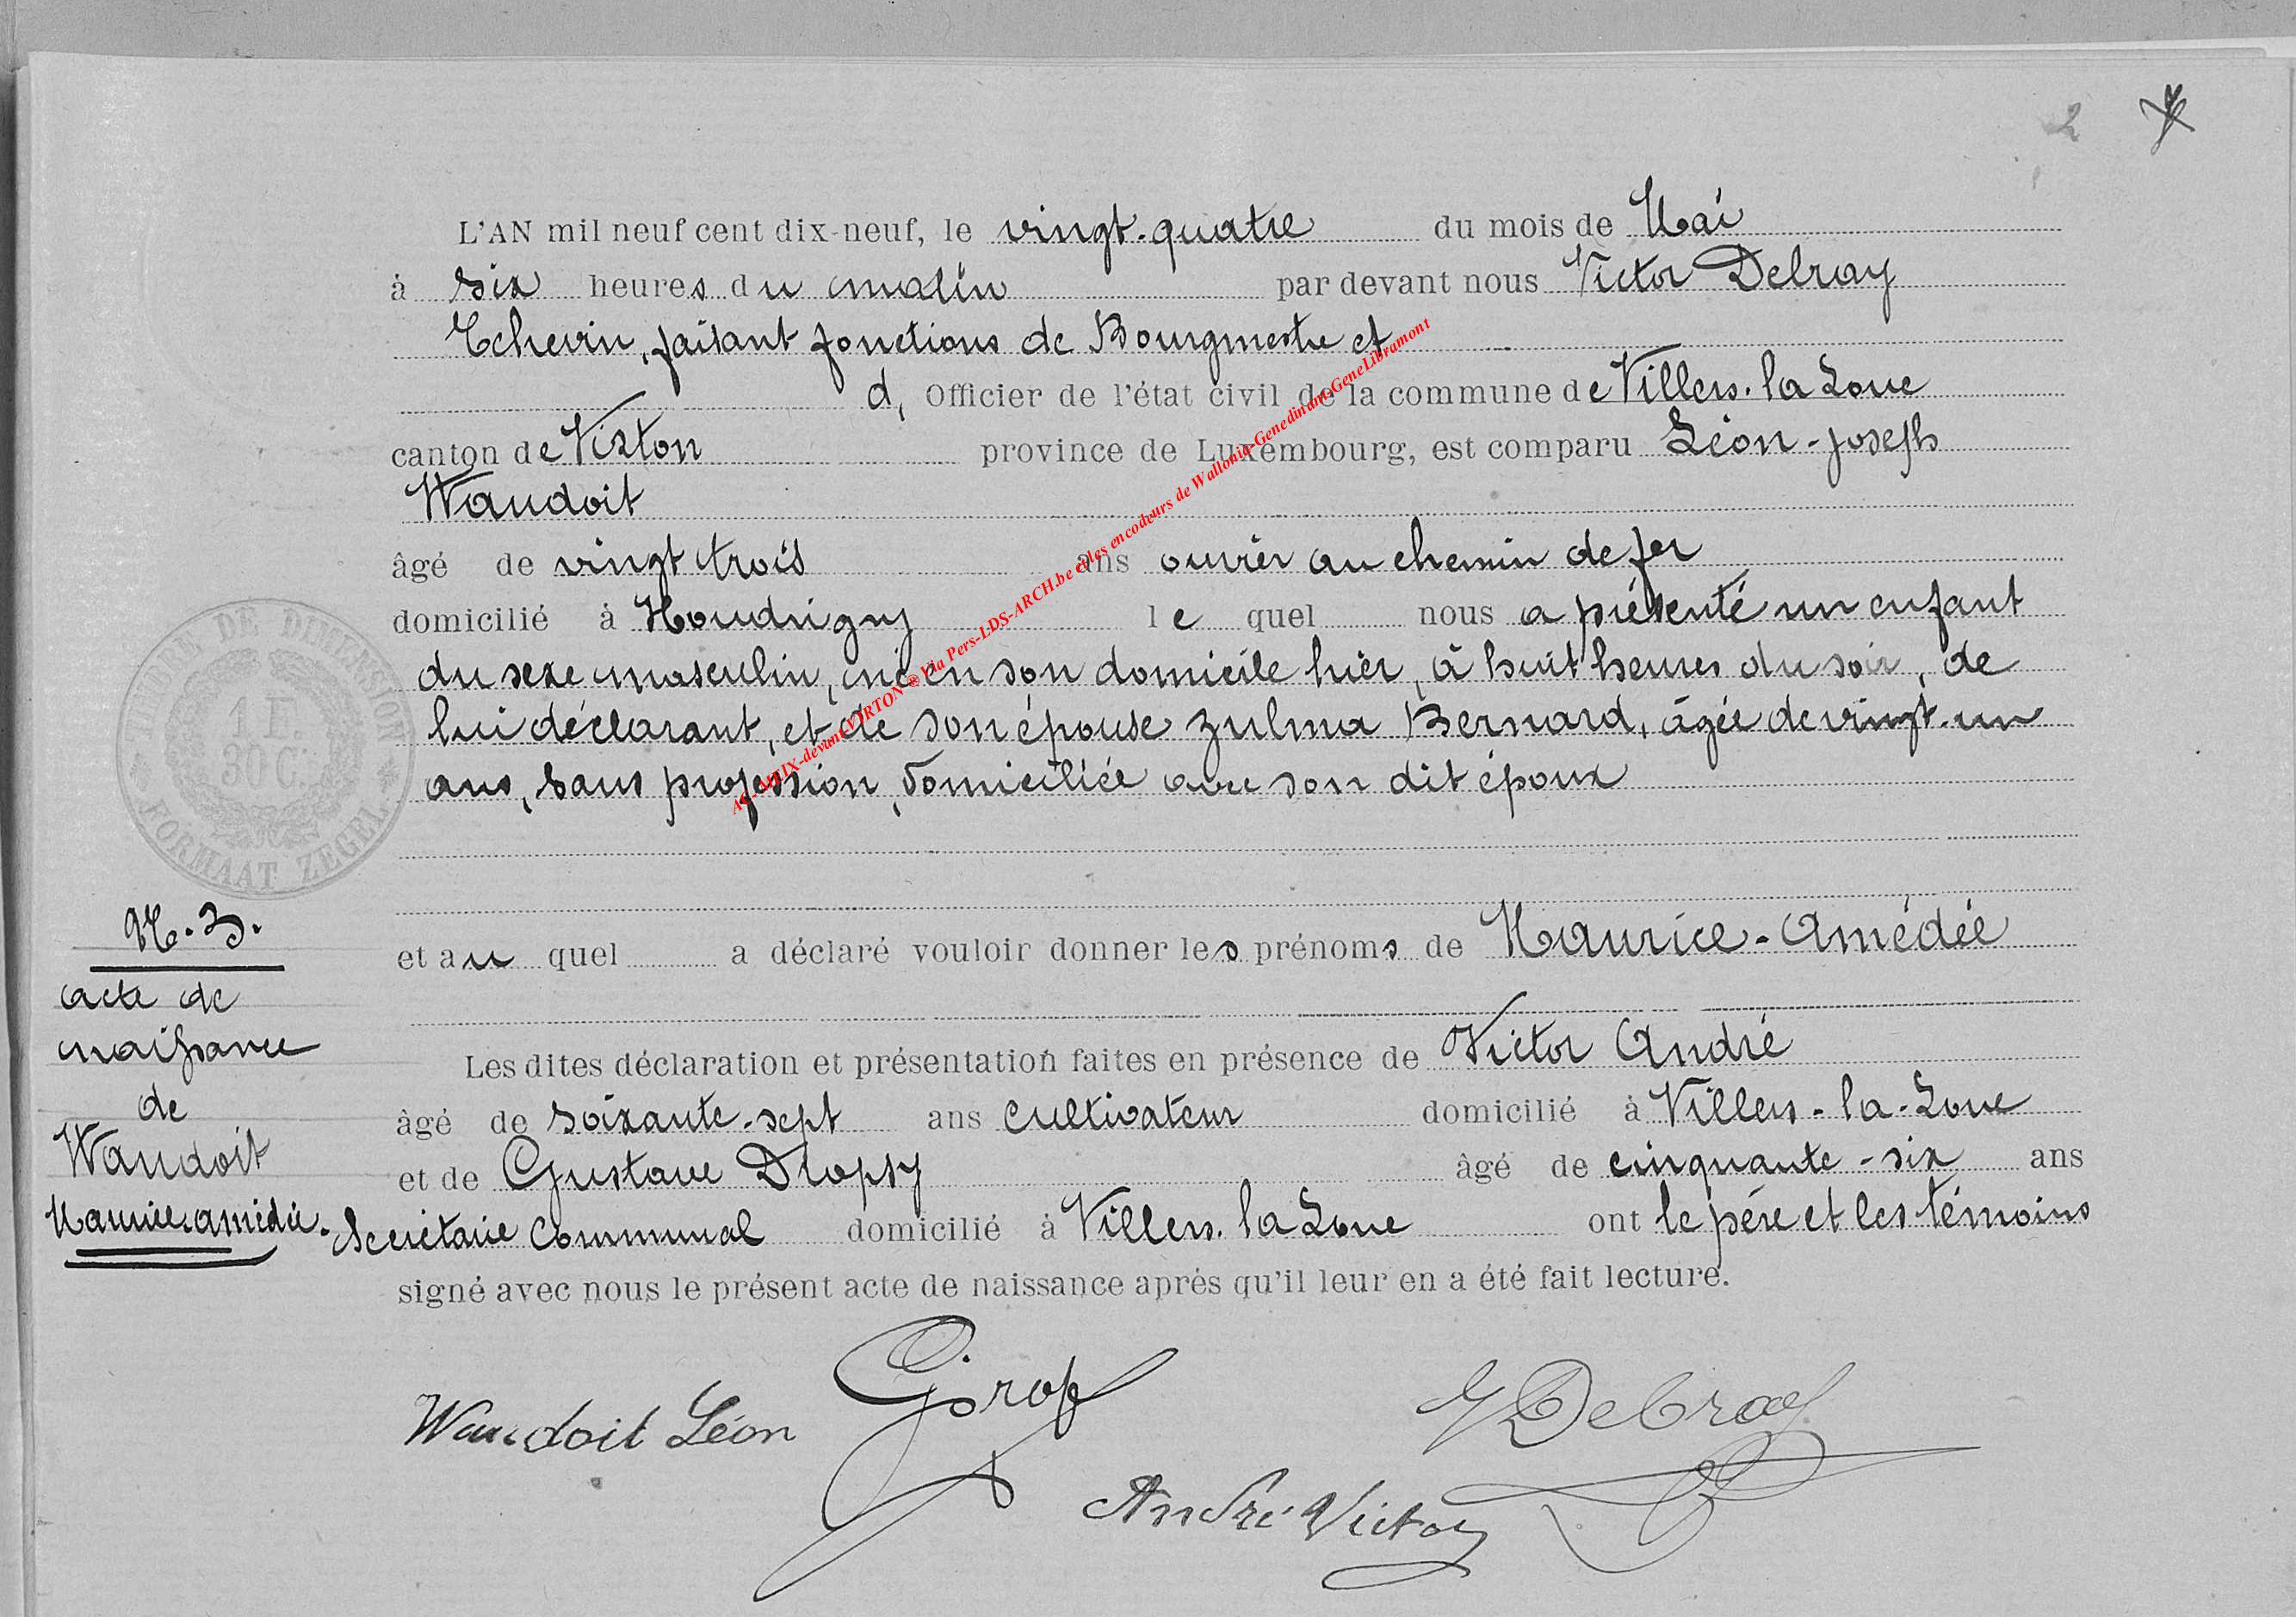 L'AN mil neuf cent dix-neuf, le vingt-quatre du mois de Mai
à six heures du matin par devant nous Victor Delray
Echevin, faisant fonctions de Bourgmestre et
d, Officier de l'état civil de la commune de Villers-la Loue
canton de Virton province de Luxembourg, est comparu Léon-Joseph
Waudoit
âgé de vingt trois ans ouvrier au chemin de fer
domicilié à Houdrigny le quel nous a présenté un enfant
du sexe masculin, né en son domicile hier, à huit heures du soir, de
lui déclarant, et de son épouse Zulma Bernard, âgée de vingt-un
ans, sans profession, domiciliée avec son dit époux
TIMBRE DE DIMENSION
1 F.
30 C.
FORMAAT ZEGEL
N. 3.
et au quel a déclaré vouloir donner les prénoms de Maurice-Amédée
acte de
naissance
Les dites déclaration et présentation faites en présence de Victor André
de
âgé de soixante-sept ans cultivateur domicilié à Villers-la-Loue
Waudoit
et de Gustave Dropsy âgé de cinquante-six ans
Maurice-Amédée.
Secrétaire communal domicilié à Villers-la Loue ont le père et les témoins
signé avec nous le présent acte de naissance après qu'il leur en a été fait lecture.
Waudoit Léon
André Victor